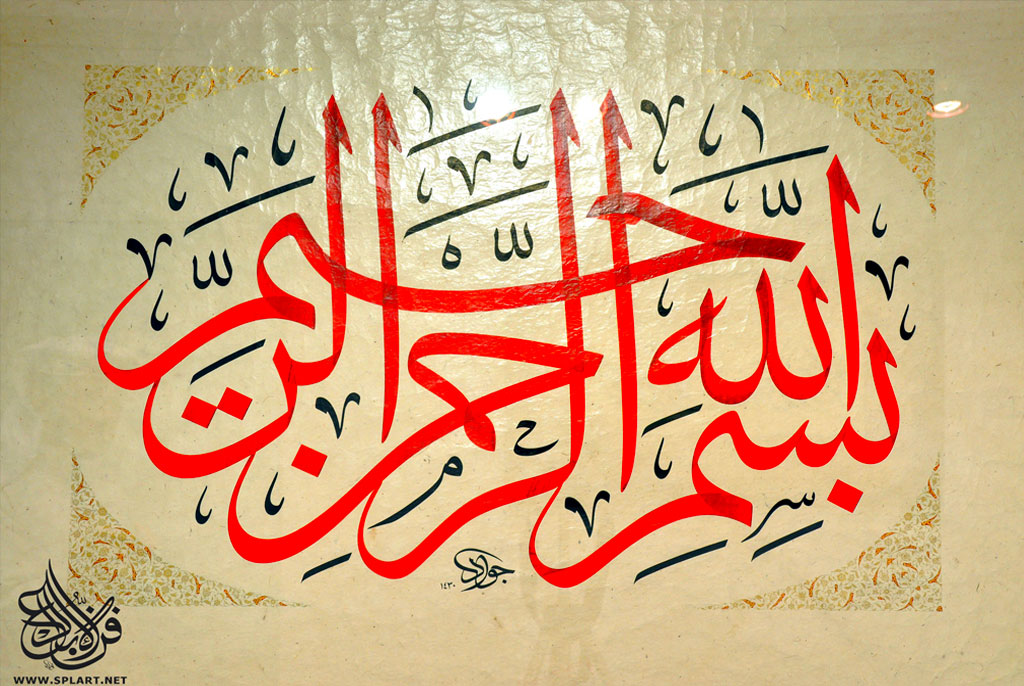 بسم الله الرحمن الرحيم
جواد
١٤٣٠
WWW.SPLART.NET